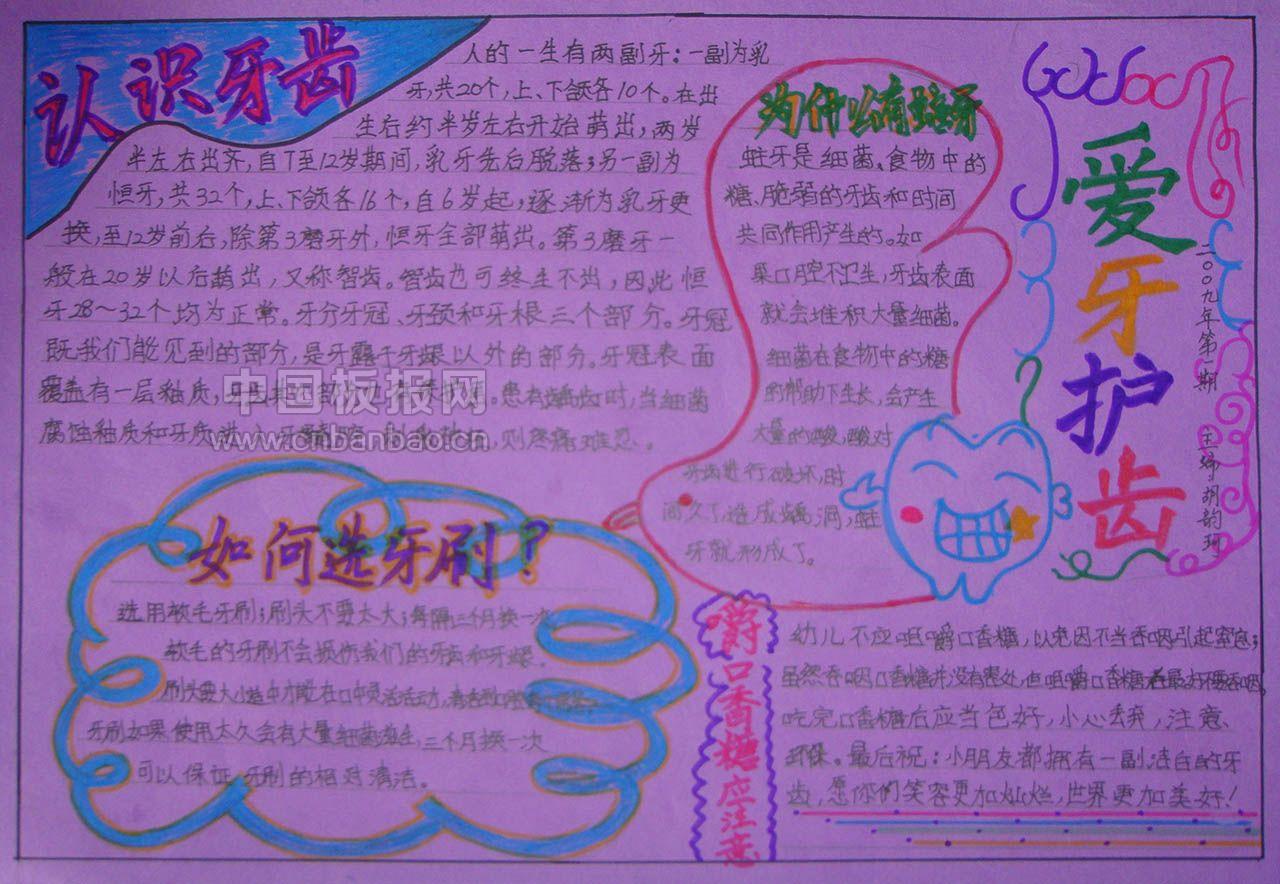 认识牙齿
人的一生有两副牙：一副为乳
牙,共20个,上、下颌各10个。在出
生后约半岁左右开始萌出，两岁
半左右出齐,自7至12岁期间,乳牙先后脱落;另一副为
恒牙,共32个,上、下颌各16个,自6岁起,逐渐为乳牙更
换,至12岁前后,除第3磨牙外,恒牙全部萌出。第3磨牙一
般在20岁以后萌出,又称智齿。智齿也可终生不出,因此恒
牙28～32个均为正常。牙分牙冠、牙颈和牙根三个部分。牙冠
既我们能见到的部分,是牙露于牙龈以外的部分。牙冠表面
覆盖有一层釉质,患有龋齿时,当细菌
腐蚀釉质和牙质,则疼痛难忍。
中国板报网
www.cnbanbao.cn
为什么有蛀牙
蛀牙是细菌、食物中的
糖、脆弱的牙齿和时间
共同作用产生的。如
果口腔不卫生,牙齿表面
就会堆积大量细菌。
细菌在食物中的糖
的帮助下生长,会产生
大量的酸,酸对
牙齿进行破坏,时
间久了,造成龋洞,蛀
牙就形成了。
爱牙护齿
二〇〇九年第一期 主编胡韵珂
如何选牙刷？
选用软毛牙刷;刷头不要太大;每隔三个月换一次
软毛的牙刷不会损伤我们的牙齿和牙龈。
刷头要大小适中才能在口中灵活活动,
牙刷如果使用太久会有大量细菌滋生,三个月换一次
可以保证牙刷的相对清洁。
嚼口香糖应注意
幼儿不应咀嚼口香糖,以免因不当吞咽引起窒息;
虽然吞咽口香糖并没有害处,但咀嚼口香糖者最好不要吞咽,
吃完口香糖后应当包好,小心丢弃,注意
环保。最后祝:小朋友都拥有一副洁白的牙
齿,愿你们笑容更加灿烂,世界更加美好!